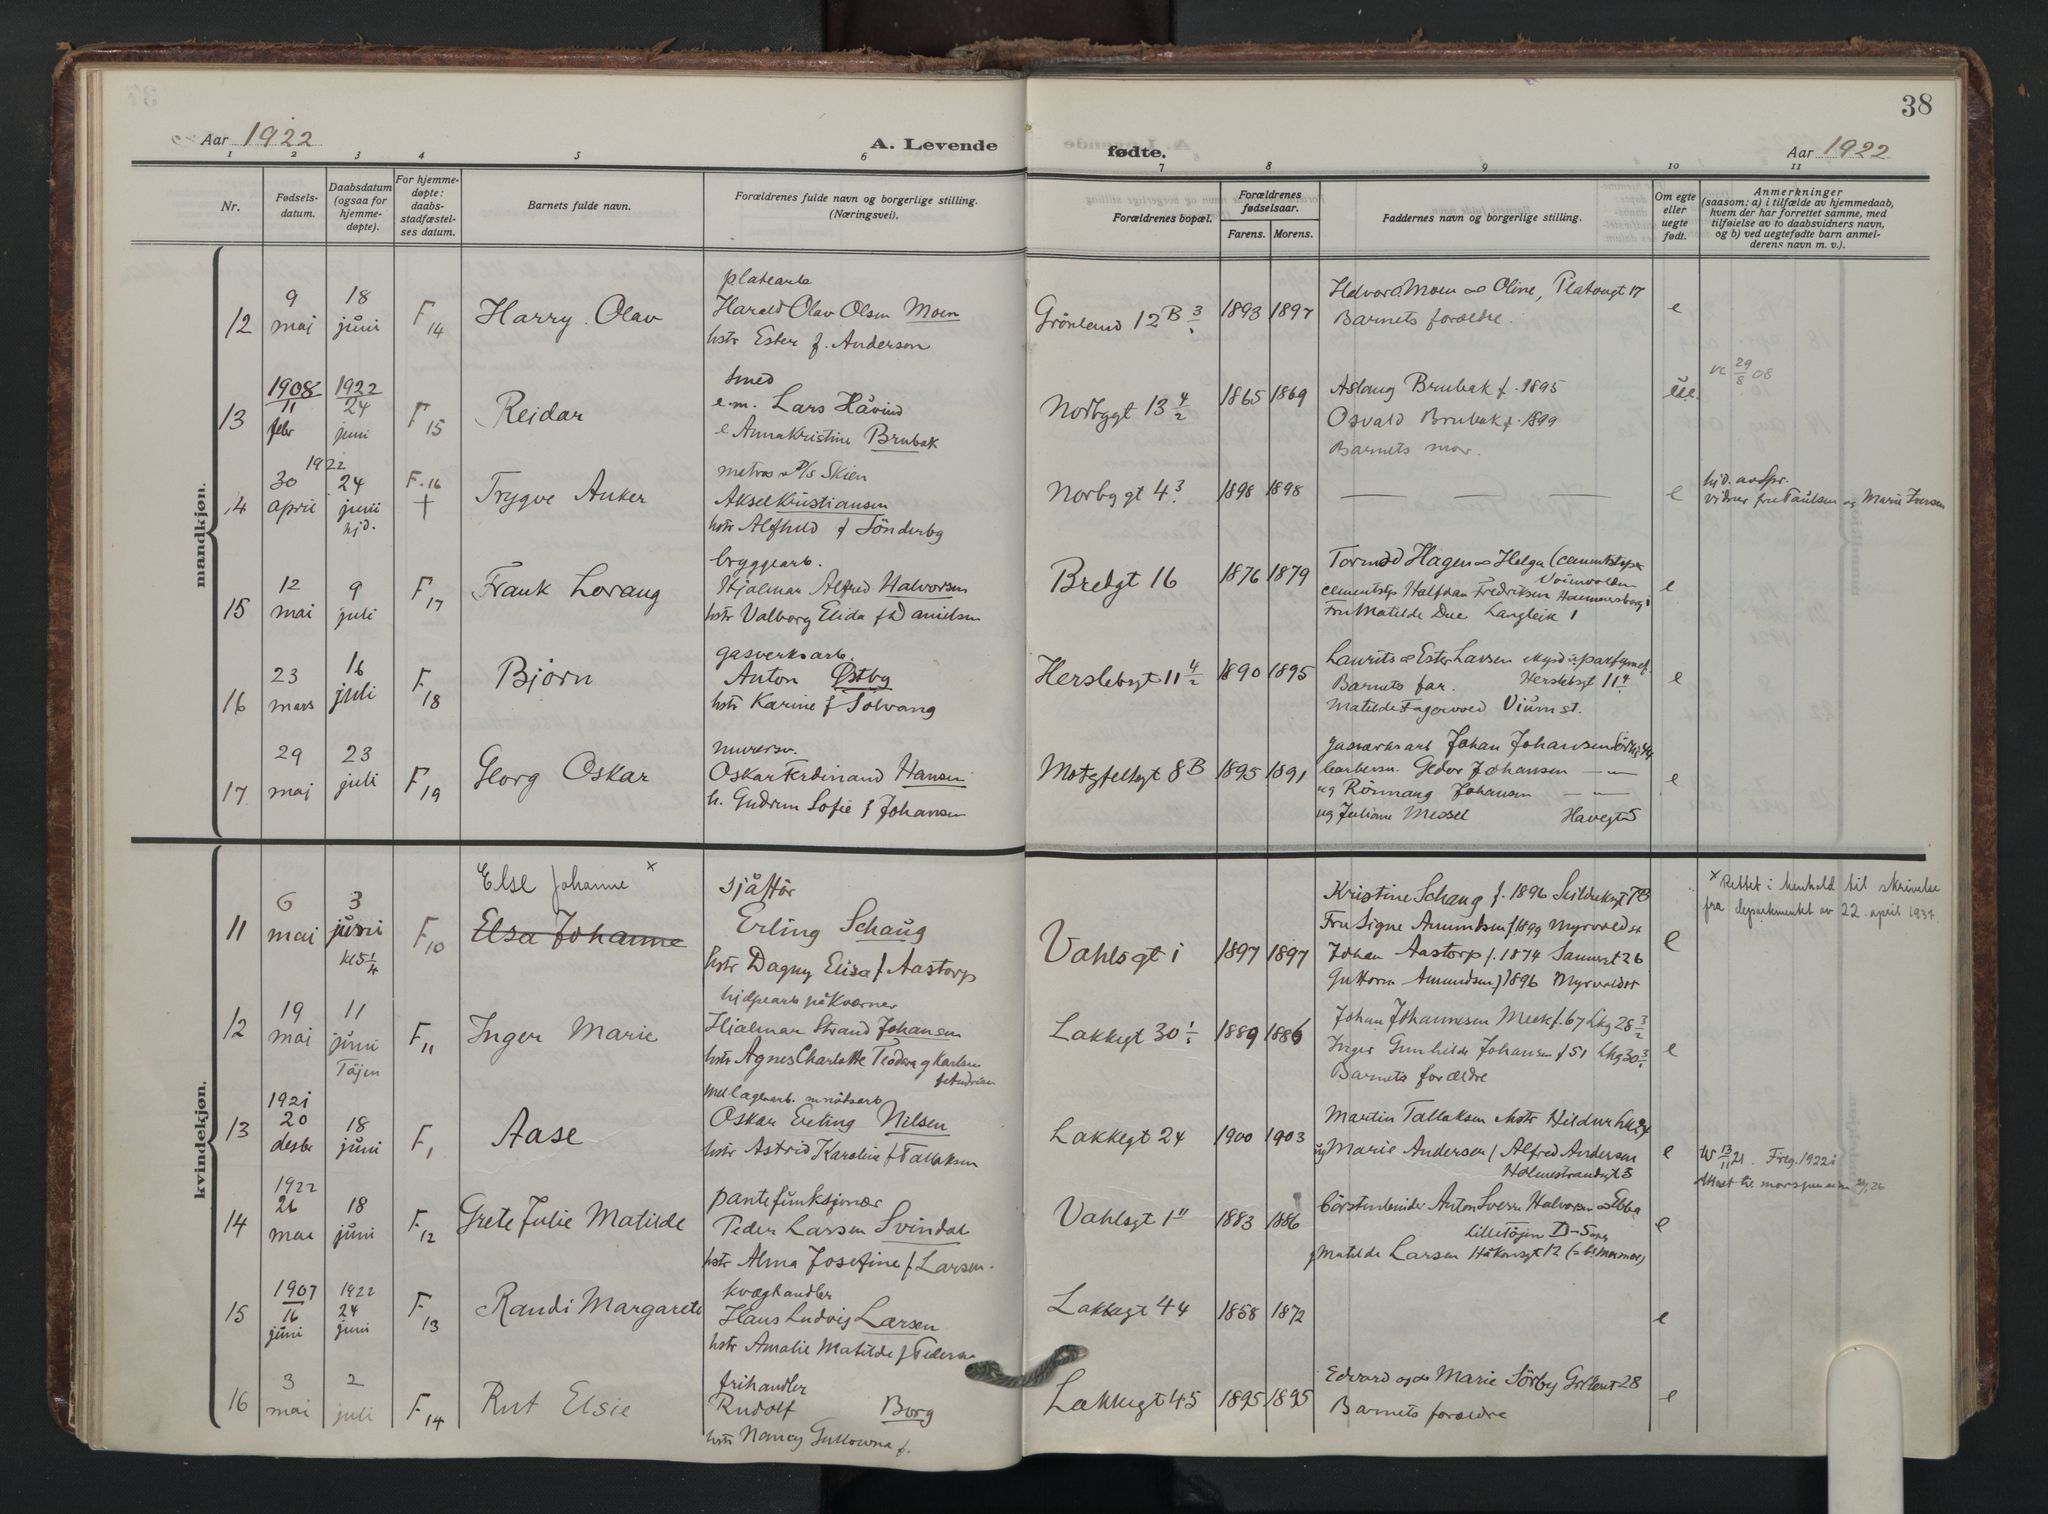 38
Aar 1922
A. Levende
fødte.
Aar 1922
1 2 3 4 5 6 7 8 9 10 11
Nr.
Fødsels-
datum.
Daabsdatum
(ogsaa for
hjemme-
døpte).
For hjemme-
døpte:
daabs-
stadfæstel-
ses datum.
Barnets fulde navn.
Forældrenes fulde navn og borgerlige stilling.
(Næringsvei).
Forældrenes bopæl.
Forældrenes
fødselsaar.
Farens. Morens.
Faddernes navn og borgerlige stilling.
Om egte
eller
uegte
født.
Anmerkninger
(saasom: a) i tilfælde av hjemmedaab,
hvem der har forrettet samme, med
tilføielse av to daabsvidners navn,
og b) ved uegtefødte barn anmel-
derens navn m. v.).
mandkjøn.
12
9
mai
18
juni
F 14
Harry Olav
platearb
Harald Olav Olsen Moen
hstr Ester f. Anderson
Grönland 12 B 3
1893 1897
Halvard Moen Oline, Platougt 17
Barnets forældre.
e
13
1908
11
febr
1922
24
juni
F 15
Reidar
smed
e.m. Lars Håvind
e Anna Kristine Brubak
Norbygt 13 4/2
1865 1869
Aslaug Brubak f. 1895
Osvald Brubak f. 1899
Barnets mor.
ue.
29/8 08
14
1922
30
april
24
juni
hjd.
F. 16
†
Trygve Anker
D/S Skien
Aksel Kristiansen
hstr Alfhild f Sönderby
Norbygt 4 3
1898 1898
— — —
e
hjd. av Spr.
vidner fru Paulsen og Marie Iversen
15
12
mai
9
juli
F 17
Frank Lorang
bryggearb.
Hjalmar Alfred Halvorsen
hstr Valborg Elida f Danielsen
Bredgt 16
1876 1879
Tormod Hagen Helga
Halfdan Fredriksen
Fru Matilde Due Langleik 1
e
16
23
mars
16
juli
F 18
Bjørn
gasverksarb.
Anton Østby
hstr Karine f Solvang
Herslebsgt 11 4/2
1890 1895
Laurits Ester Larsen
Barnets far. Herslebsgt 11 4
Matilde
e
17
29
mai
23
juli
F 19
Georg Oskar
murersv.
Oskar Ferdinand Hansen
h. Gudrun Sofie f Johansen
Motzfeltsgt 8 B
1895 1891
gasverksarb Johan Johansen
barbersv. Johansen — " —
ug Johansen — " —
ug Juliane Messel Havegt 5
e
kvindekjøn.
11
6
mai
3
juni
kl 5 1/4
F 10
Else Johanne x
Elsa Johanne
sjåffør
Erling Schaug
hstr Dagny Elisa f Aastorp
Vahlsgt 1
1897 1897
Kristine Schaug f. 1896
Fru Signe Amundsen f 1899
Johan Aastorp f. 1874 26
Guttorm Amundsen f 1896
e
x Rettet i henhold til skrivelse
fra departementet av 22. april 1937.
12
19
mai
11
juni
Töjen
F 11
Inger Marie
hjelpearb på Kværner
Hjalmar Strand Johansen
hstr Agnes Charlotte Teodora
Lakkegt 30 1
1889 1886
Johan Johannesen f. 67 Lkg 28 3/2
Inger Gunhilde Johansen f 51 Lkg 30 3
Barnets forældre
e
13
1921
20
desbr
18
juni
F 1
Aase
Oskar Erling Nilsen
hstr Astrid Karoline f Tallaksen
Lakkegt 24
1900 1903
Martin Tallaksen hstr Hildur
ug Marie Andersen / Alfred Andersen
Holmestrandsgt 3
e
13/11 21. Freg. 1922
14
1922
26
mar
18
juni
F 12
Grete Julie Matilde
pantefunksjonær
Peder Larsen Svindal
hstr Alma Josefine f Larsen.
Vahlsgt 1 II
1883 1886
börstenbinder Anton Halvorsen Ebba
Lilletöjen
Matilde Larsen Håkonsgt 12
e
15
1907
16
juni
1922
24
juni
F 13
Randi Margarete
kvæghandler
Hans Ludvig Larsen
hstr Amalie Matilde f
Lakkegt 44
1858 1872
e
16
3
mai
2
juli
F 14
Rut Elsie
frihandler
Rudolf Borg
hstr Nancy f.
Lakkegt 45
1895 1895
Edvard Marie Sörby 28
Barnets forældre
e